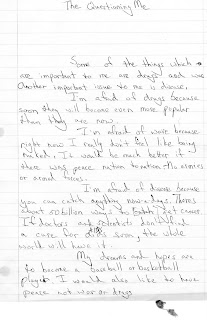 The Questioning Me
Some of the things which
are important to me are drugs and war
Another important issue to me is disease.
I'm afraid of drugs because
soon they will become even more popular
than they are now.
I'm afraid of wars because
right now I really don't feel like being
nuked. It would be much better if
there was peace nation to nation. No armies
or armed forces.
I'm afraid of disease because
you can catch anything now-a-days. Theres
about 50 billion ways to catch cancer.
If doctors and scientists don't find
a cure for aids soon, the whole
world will have it.
My dreams and hopes are
to become a baseball or basketball
player. I would also like to have
peace not war or drugs